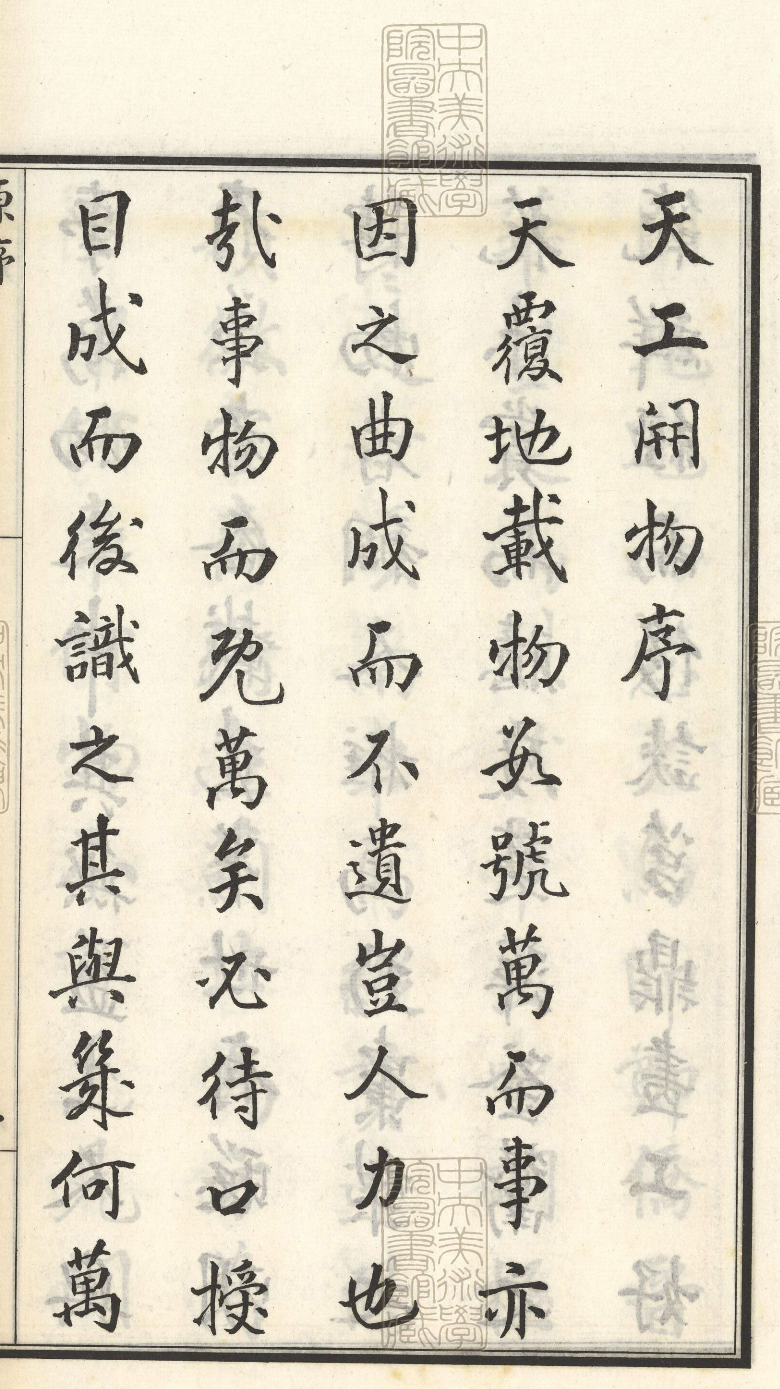 天工開物序
天覆地載物數號萬而事亦
因之曲成而不遺豈人力也
哉事物而既萬矣必待口授
目成而後識之其與幾何萬
原序
中央美術學
院圖書館藏
中央美術學
院圖書館藏